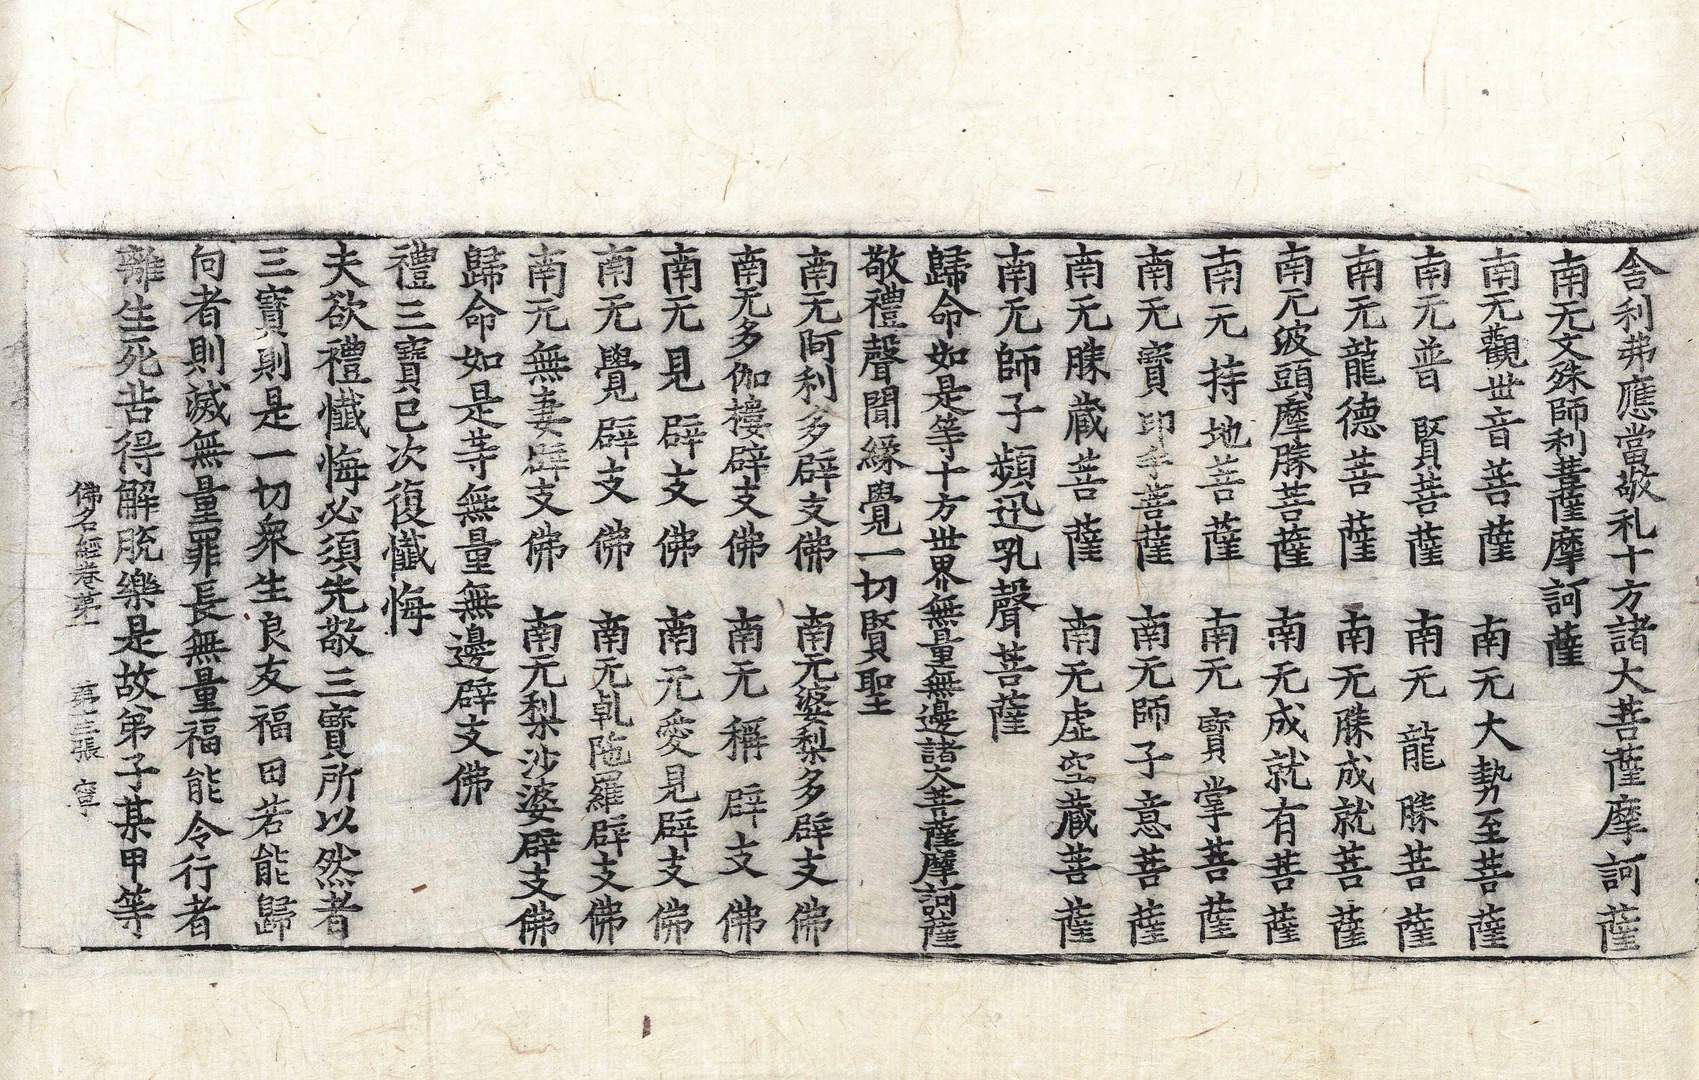 舍利弗應當敬礼十方諸大菩薩摩訶薩
南无文殊師利菩薩摩訶薩
南无觀世音菩薩　南无大勢至菩薩
南无普賢菩薩　南无龍勝菩薩
南无龍德菩薩　南无勝成就菩薩
南无波頭摩勝菩薩　南无成就有菩薩
南无持地菩薩　南无寶掌菩薩
南无寶印手菩薩　南无師子意菩薩
南无勝藏菩薩　南无虛空藏菩薩
南无師子頻迅吼聲菩薩
歸命如是等十方世界無量無邊諸大菩薩摩訶薩
敬禮聲聞緣覺一切賢聖
南无阿利多辟支佛　南无婆梨多辟支佛
南无多伽樓辟支佛　南无稱辟支佛
南无見辟支佛　南无愛見辟支佛
南无覺辟支佛　南无乹陁羅辟支佛
南无無妻辟支佛　南无梨沙婆辟支佛
歸命如是等無量無邊辟支佛
禮三寶已次復懺悔
夫欲禮懺悔必須先敬三寶所以然者
三寶則是一切衆生良友福田若能歸
向者則滅無量罪長無量福能令行者
離生死苦得解脫樂是故弟子某甲等
佛名經卷第一　第三張　寧